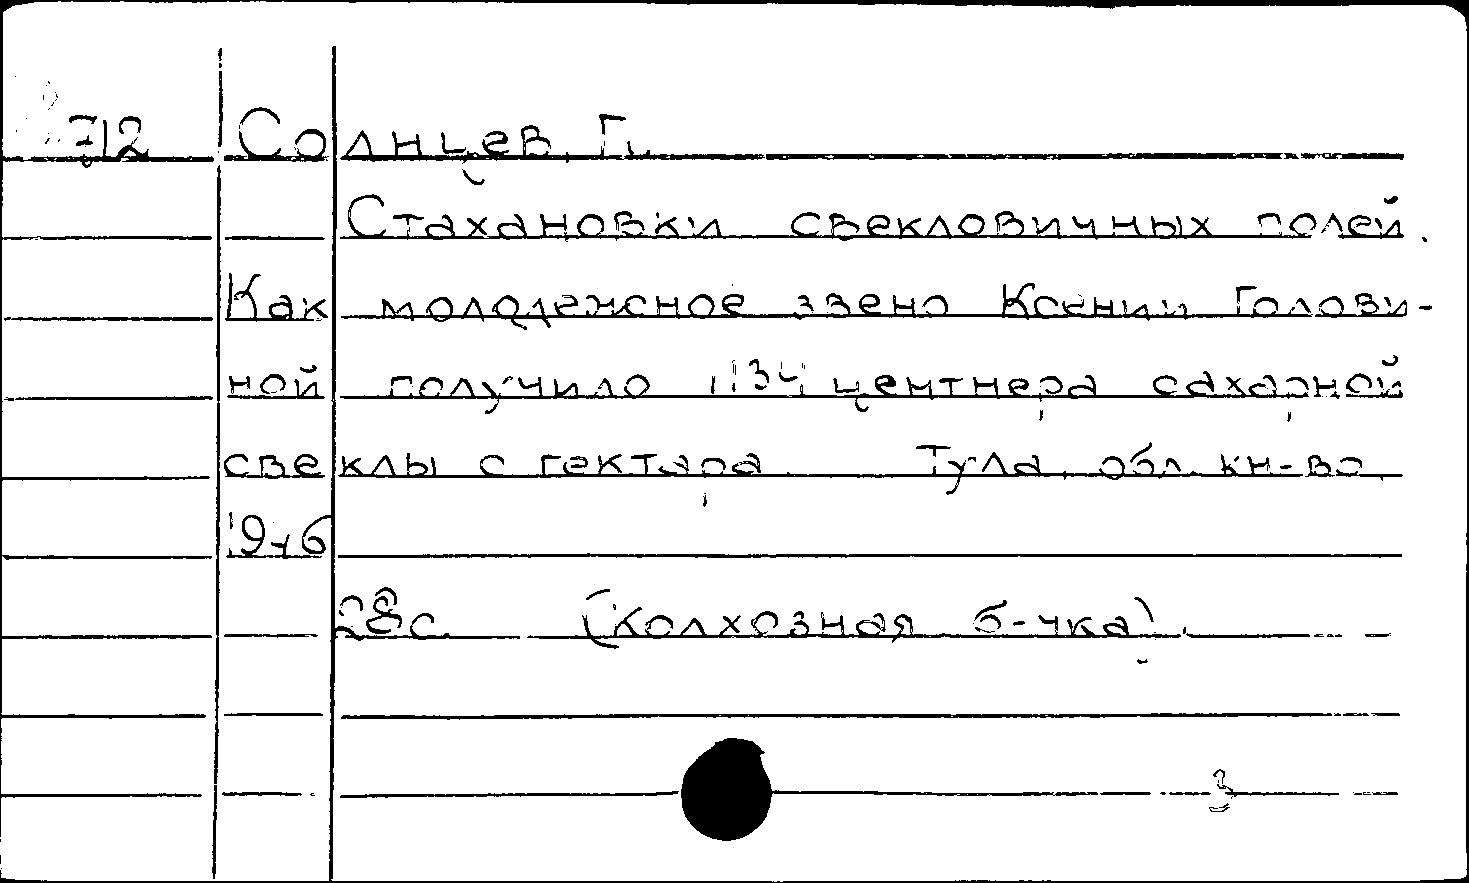 712 Солнцев, Г.
Стахановки свекловичных полей.
Как молодежное звено Ксении Голови-
ной получило 1134 центнера сахарной
свеклы с гектара. Тула, обл. кн-во,
28 с. (Колхозная б-чка).
3